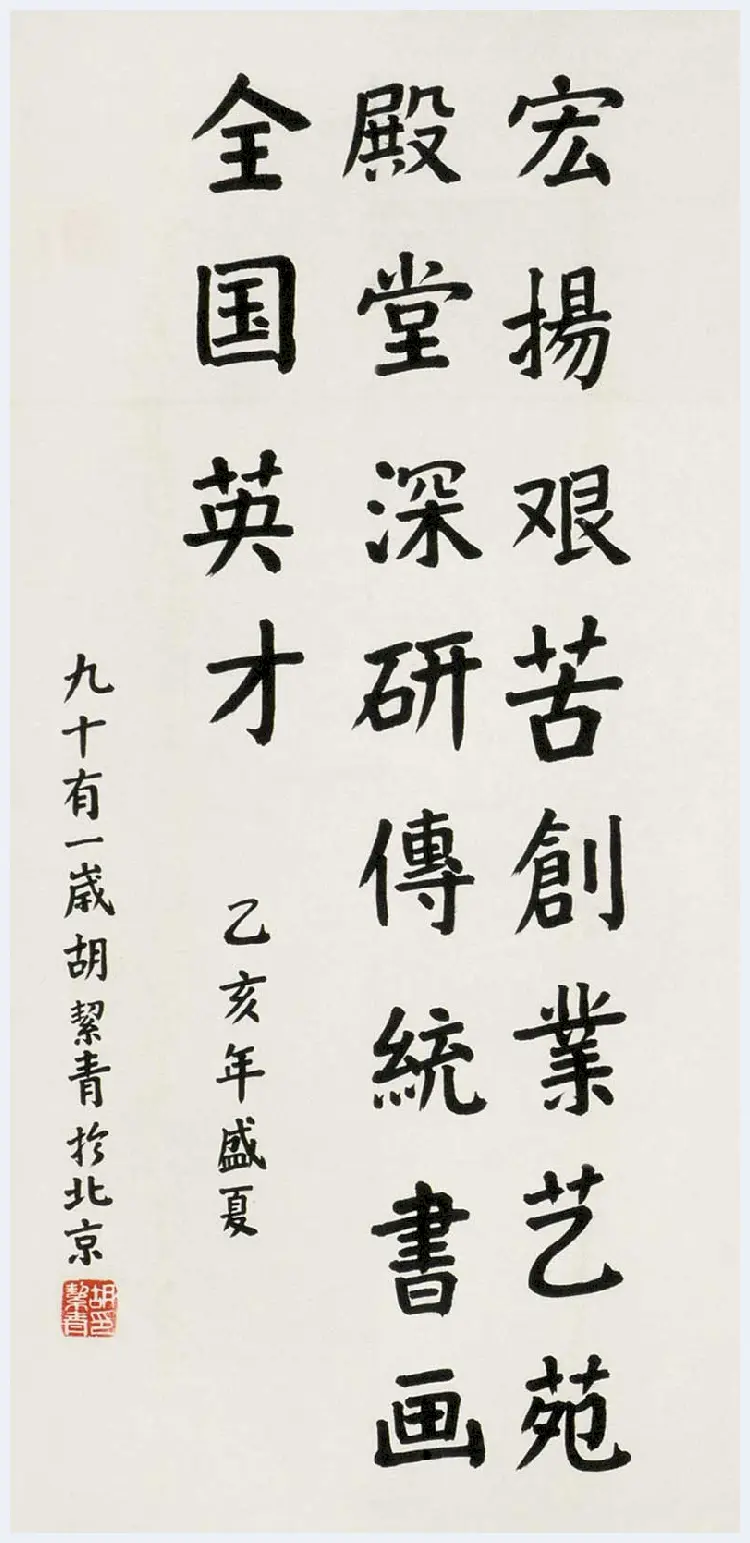 宏揚艰苦創業艺苑
殿堂深研傳統書画
全国英才
乙亥年盛夏
九十有一歲胡絜青於北京
胡絜青印